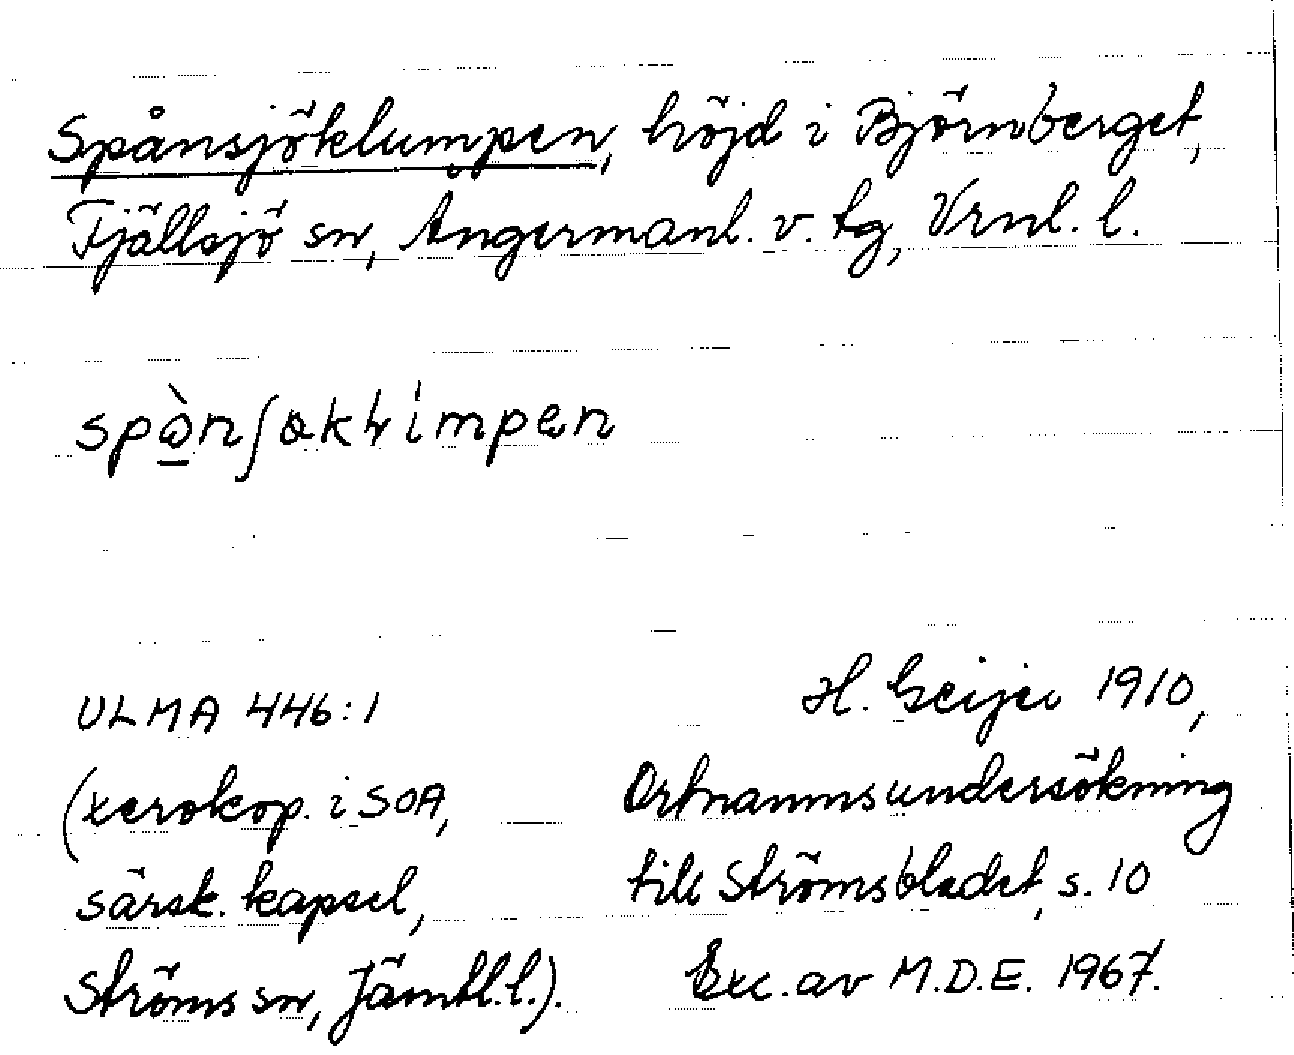 Spånsjöklumpen, höjd i Björnberget,
Fjällsjö sn, Ångermanl. v. tg, Vrnl. l.
ULMA 446:1
(xerokop. i SOA,
särsk. kapsel,
Ströms sn, Jämtl.l.).
H. Geijer 1910,
Ortnamnsundersökning
till Strömsbladet, s. 10
Exc. av M.D.E. 1967.